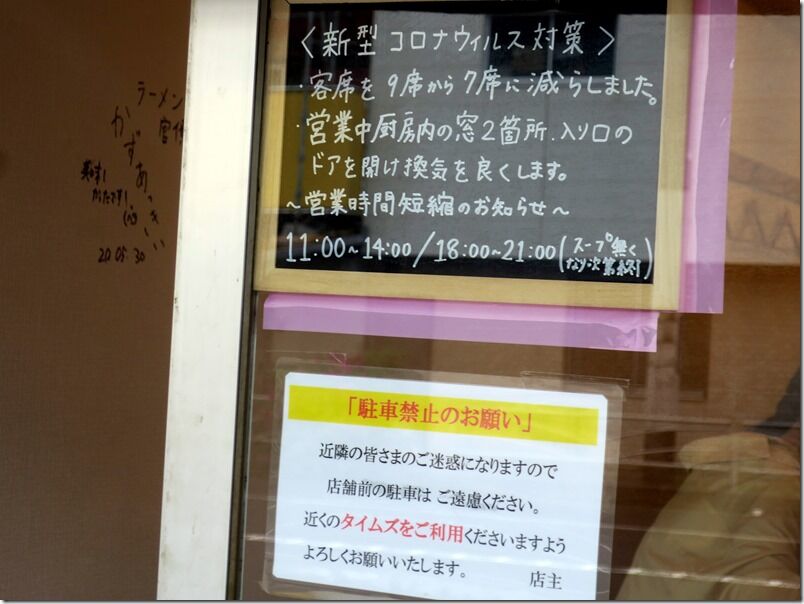 ＜新型コロナウィルス対策＞
・客席を9席から7席に減らしました。
・営業中厨房内の窓2箇所、入り口の
ドアを開け換気を良くします。
〜営業時間短縮のお知らせ〜
11:00〜14:00/18:00〜21:00(スープ無く
なり次第終了)
「駐車禁止のお願い」
近隣の皆さまのご迷惑になりますので
店舗前の駐車は ご遠慮ください。
近くのタイムズをご利用くださいますよう
よろしくお願いいたします。
店主
ラーメン
20.05.30